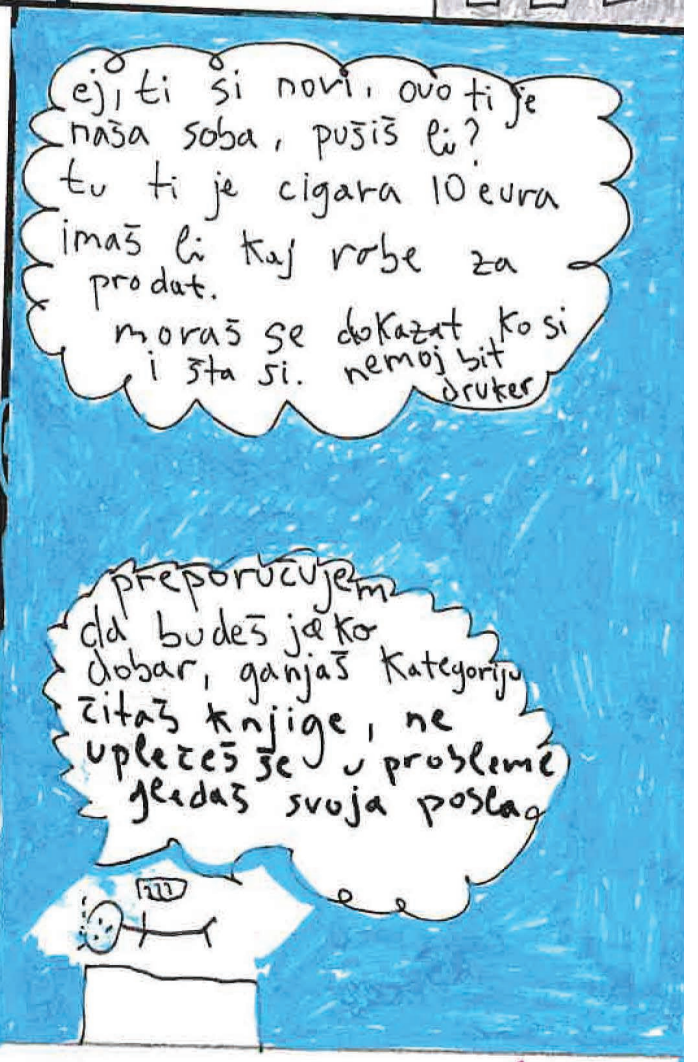 ej, ti si novi, ovo ti je
naša soba, pušiš li?
tu ti je cigara 10 eura
imaš li kaj robe za
prodat.
moraš se dokazat ko si
i šta si. nemoj bit
druker
preporučujem
da budeš jako
dobar, ganjaš kategoriju
čitaš knjige, ne
uplečeš se u probleme
gledaš svoja posla